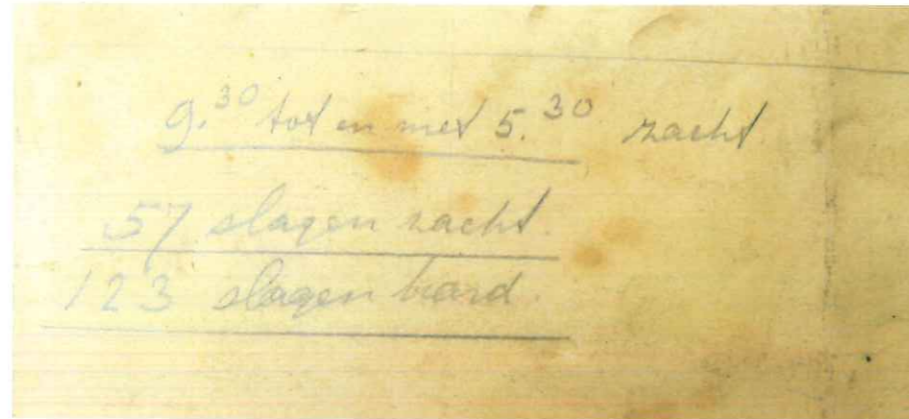 9.30 tot en met 5.30 zacht
57 slagen zacht.
123 slagen hard.